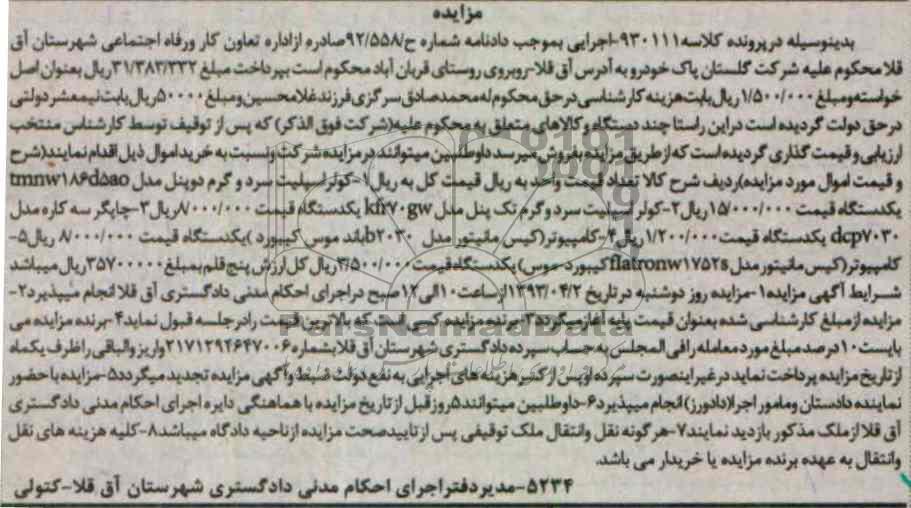 مزایده
بدینوسیله در پرونده کلاسه ۹۳۰۱۱۱-اجرایی بموجب دادنامه شماره ح/۹۲/۵۵۸صادره ازاداره تعاون کار ورفاه اجتماعی شهرستان آق
قلا محکوم علیه شرکت گلستان پاک خودرو به آدرس آق قلا-روبروی روستای قربان آباد محکوم است بپرداخت مبلغ ۳۱/۳۸۳/۳۳۲ریال بعنوان اصل
خواسته ومبلغ ۱/۵۰۰/۰۰۰ریال بابت هزینه کارشناسی در حق محکوم له محمدصادق سرگزی فرزند غلامحسین ومبلغ ۵۰۰۰۰ریال بابت نیمعشر دولتی
در حق دولت گردیده است در این راستا چند دستگاه وکالاهای متعلق به محکوم علیه(شرکت فوق الذکر) که پس از توقیف توسط کارشناس منتخب
ارزیابی و قیمت گذاری گردیده است که از طریق مزایده بفروش میرسد داوطلبین میتوانند در مزایده شرکت ونسبت به خرید اموال ذیل اقدام نمایند(شرح
و قیمت اموال مورد مزایده)ردیف شرح کالا تعداد قیمت واحد به ریال قیمت کل به ریال۱-کولر اسپلیت سرد و گرم دوپنل مدل tmnw۱۸۶d۵ao
یکدستگاه قیمت ۱۵/۰۰۰/۰۰۰ریال۲-کولر اسپلیت سرد وگرم تک پنل مدل kfr۷۰gw یکدستگاه قیمت ۸/۰۰۰/۰۰۰ریال۳-چاپگر سه کاره مدل
dcp۷۰۳۰ یکدستگاه قیمت۱/۲۰۰/۰۰۰ریال۴-کامپیوتر(کیس مانیتور مدل b۲۰۳۰باند موس کیبورد )یکدستگاه قیمت ۸/۰۰۰/۰۰۰ ریال۵-
کامپیوتر(کیس مانیتور مدل flatronw۱۷۵۲sکیبورد-موس) یکدستگاه قیمت ۳/۵۰۰/۰۰۰ریال کل ارزش پنج قلم بمبلغ ۳۵۷۰۰۰۰۰ریال میباشد
شرایط آگهی مزایده۱-مزایده روز دوشنبه در تاریخ ۱۳۹۳/۰۴/۲از ساعت ۱۰الی۱۲صبح در اجرای احکام مدنی دادگستری آق قلا انجام میپذیرد۲-
مزایده از مبلغ کارشناسی شده بعنوان قیمت پایه آغاز میگردد۳-برنده مزایده کسی است که بالاترین قیمت رادر جلسه قبول نماید۴-برنده مزایده می
بایست۱۰درصد مبلغ مورد معامله رافی المجلس به حساب سپرده دادگستری شهرستان آق قلا بشماره ۲۱۷۱۲۹۲۶۴۷۰۰۶واریز والباقی راظرف یکماه
از تاریخ مزایده پرداخت نماید در غیر اینصورت سپرده اوپس از کسر هزینه های اجرایی به نفع دولت ضبط وآگهی مزایده تجدید میگردد۵-مزایده با حضور
نماینده دادستان ومامور اجرا(دادورز)انجام میپذیرد۶-داوطلبین میتوانند۵روز قبل از تاریخ مزایده با هماهنگی دایره اجرای احکام مدنی دادگستری
آق قلا از ملک مذکور بازدید نمایند۷-هر گونه نقل وانتقال ملک توقیفی پس از تاییدصحت مزایده از ناحیه دادگاه میباشد۸-کلیه هزینه های نقل
وانتقال به عهده برنده مزایده یا خریدار می باشد.
۵۲۳۴-مدیر دفتر اجرای احکام مدنی دادگستری شهرستان آق قلا-کتولی
ParsNamadData